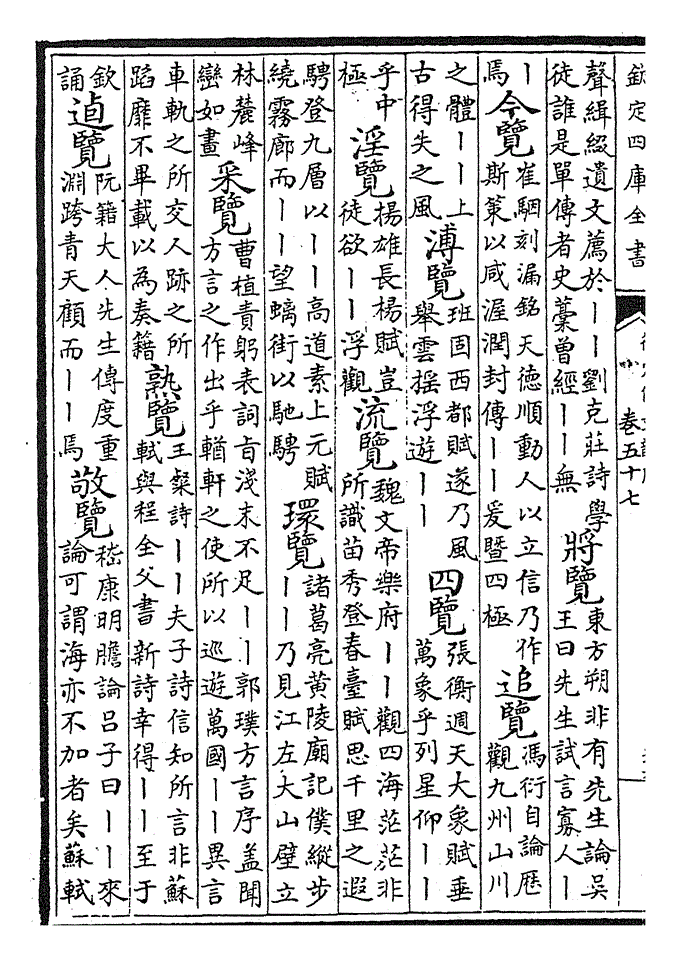 欽定四庫全書
卷五十七
聲緝綴遺文薦於丨丨劉克莊詩學
徒誰是單傳者史藁曾經丨丨無
將覽
東方朔非有先生論吳
王曰先生試言寡人丨
丨
焉
今覽
崔駰刻漏銘天德順動人以立信乃作
斯策以咸渥潤封傳丨丨爰暨四極
追覽
馮衍自論歷
觀九州山川
之體丨丨上
古得失之風
溥覽
班固西都賦遂乃風
舉雲摇浮遊丨丨
四覽
張衡週天大象賦垂
萬象乎列星仰丨丨
乎中
極
淫覽
楊雄長楊賦豈
徒欲丨丨浮觀
流覽
魏文帝樂府丨丨觀四海茫茫非
所識苗秀登春臺賦思千里之遐
騁登九層以丨丨高道素上元賦
繞霧廊而丨丨望螭街以馳騁
環覽
諸葛亮黄陵廟記僕縱步
丨丨乃見江左大山壁立
林麓峰
巒如畫
采覽
曹植責躬表詞旨淺末不足丨丨郭璞方言序蓋聞
方言之作出乎輶軒之使所以巡遊萬國丨丨異言
車軌之所交人跡之所
蹈靡不畢載以為奏籍
熟覽
王粲詩丨丨夫子詩信知所言非蘇
軾與程全父書新詩幸得丨丨至于
欽
誦
逌覽
阮籍大人先生傳度重
淵跨青天顧而丨丨焉
敬覽
嵇康明膽論吕子曰丨丨來
論可謂海亦不加者矣蘇軾